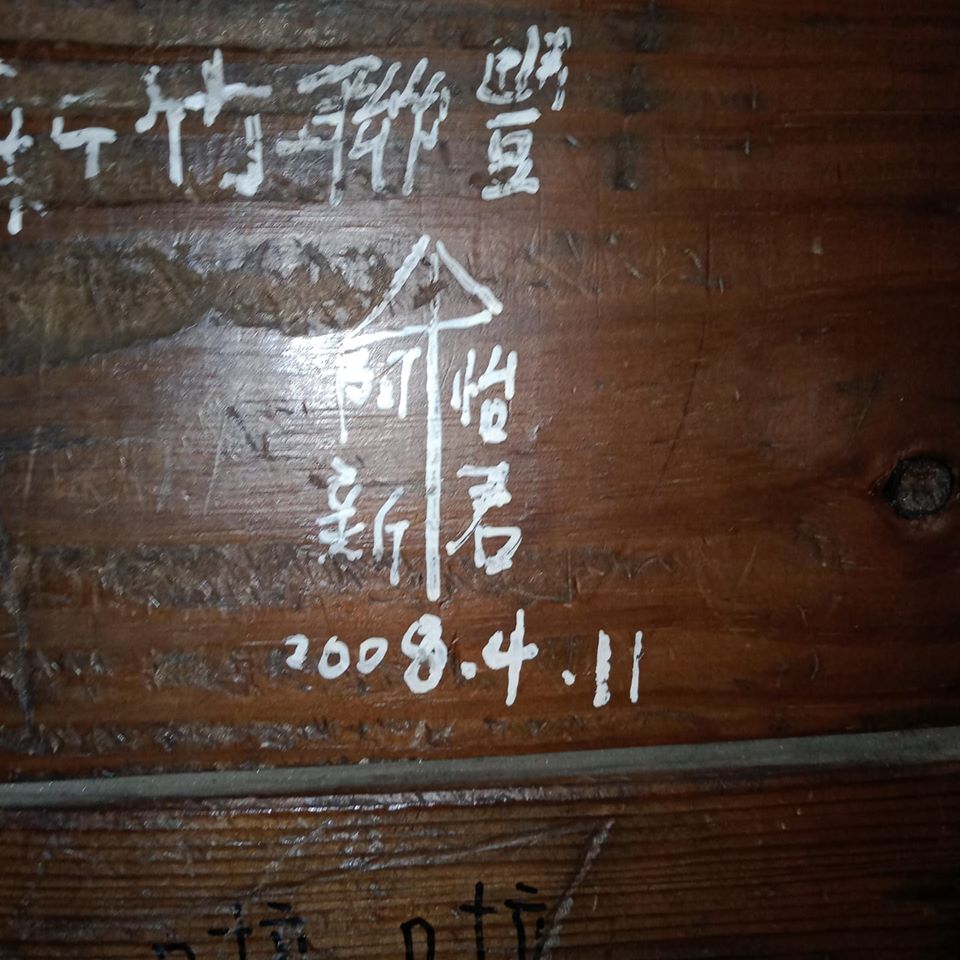 新竹聯豐
阿新
怡君
2008.4.11